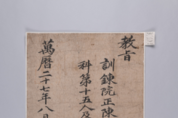 教旨
訓鍊院正陳
科第十五人
萬曆二十七年八月